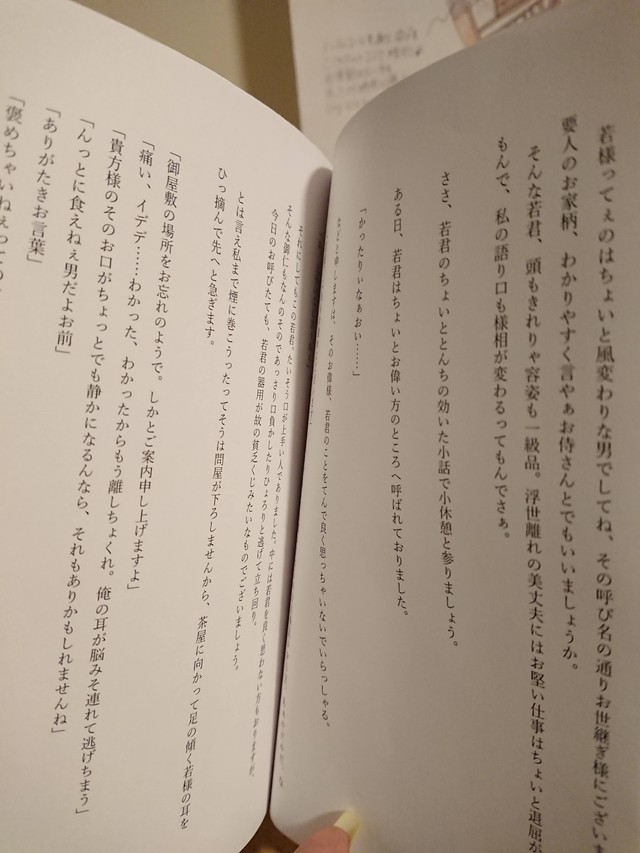 若様ってぇのはちょいと風変わりな男でしてね、その呼び名の通りお世継ぎ様にございま
要人のお家柄、わかりやすく言やぁお侍さんとでもいいましょうか。
そんな若君、頭もきれりゃ容姿も一級品。浮世離れの美丈夫にはお堅い仕事はちょいと退屈が
もんで、私の語り口も様相が変わるってもんでさぁ。
ささ、若君のちょいととんちの効いた小話で小休憩と参りましょう。
ある日、若君はちょいとお偉い方のところへ呼ばれておりました。
「かったりぃなぁおい……」
申しますは、そのお偉様、若君のことをてんで良く思っちゃいないでいらっしゃる。
それにしてもこの若君、たいそう口が上手い人でありました。中には若君を良く思わない方もおりますが、
そんな御仁もなんのそのであっさり口負かしたりひょろりと逃げて立ち回り。
今日のお呼びたても、若君の器用が故の貧乏くじみたいなものでございましょう。
とは言え私まで煙に巻こうったってそうは問屋が下ろしませんから、茶屋に向かって足の傾く若様の耳を
ひっ摘んで先へと急ぎます。
「御屋敷の場所をお忘れのようで。しかとご案内申し上げますよ」
「痛い、イデデ……わかった、わかったからもう離しちょくれ。俺の耳が脳みそ連れて逃げちまう」
「貴方様のそのお口がちょっとでも静かになるんなら、それもありかもしれませんね」
「んっとに食えねぇ男だよお前」
「ありがたきお言葉」
「褒めちゃいねぇっての